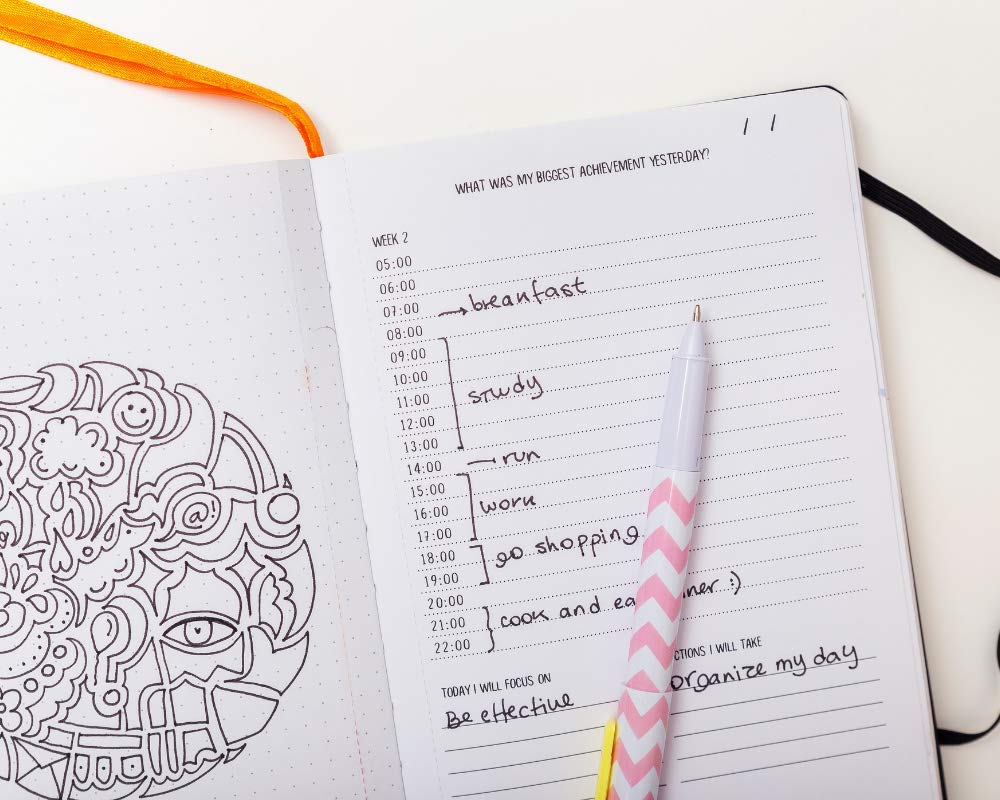 / /
WHAT WAS MY BIGGEST ACHIEVEMENT YESTERDAY?
WEEK 2
05:00
06:00
07:00 → breanfast
08:00
09:00
10:00
11:00 study
12:00
13:00
14:00 — run
15:00
16:00 work
17:00
18:00 go shopping
19:00
20:00
21:00 cook and ea ner :)
22:00
TODAY I WILL FOCUS ON
Be effective
CTIONS I WILL TAKE
organize my day
@!